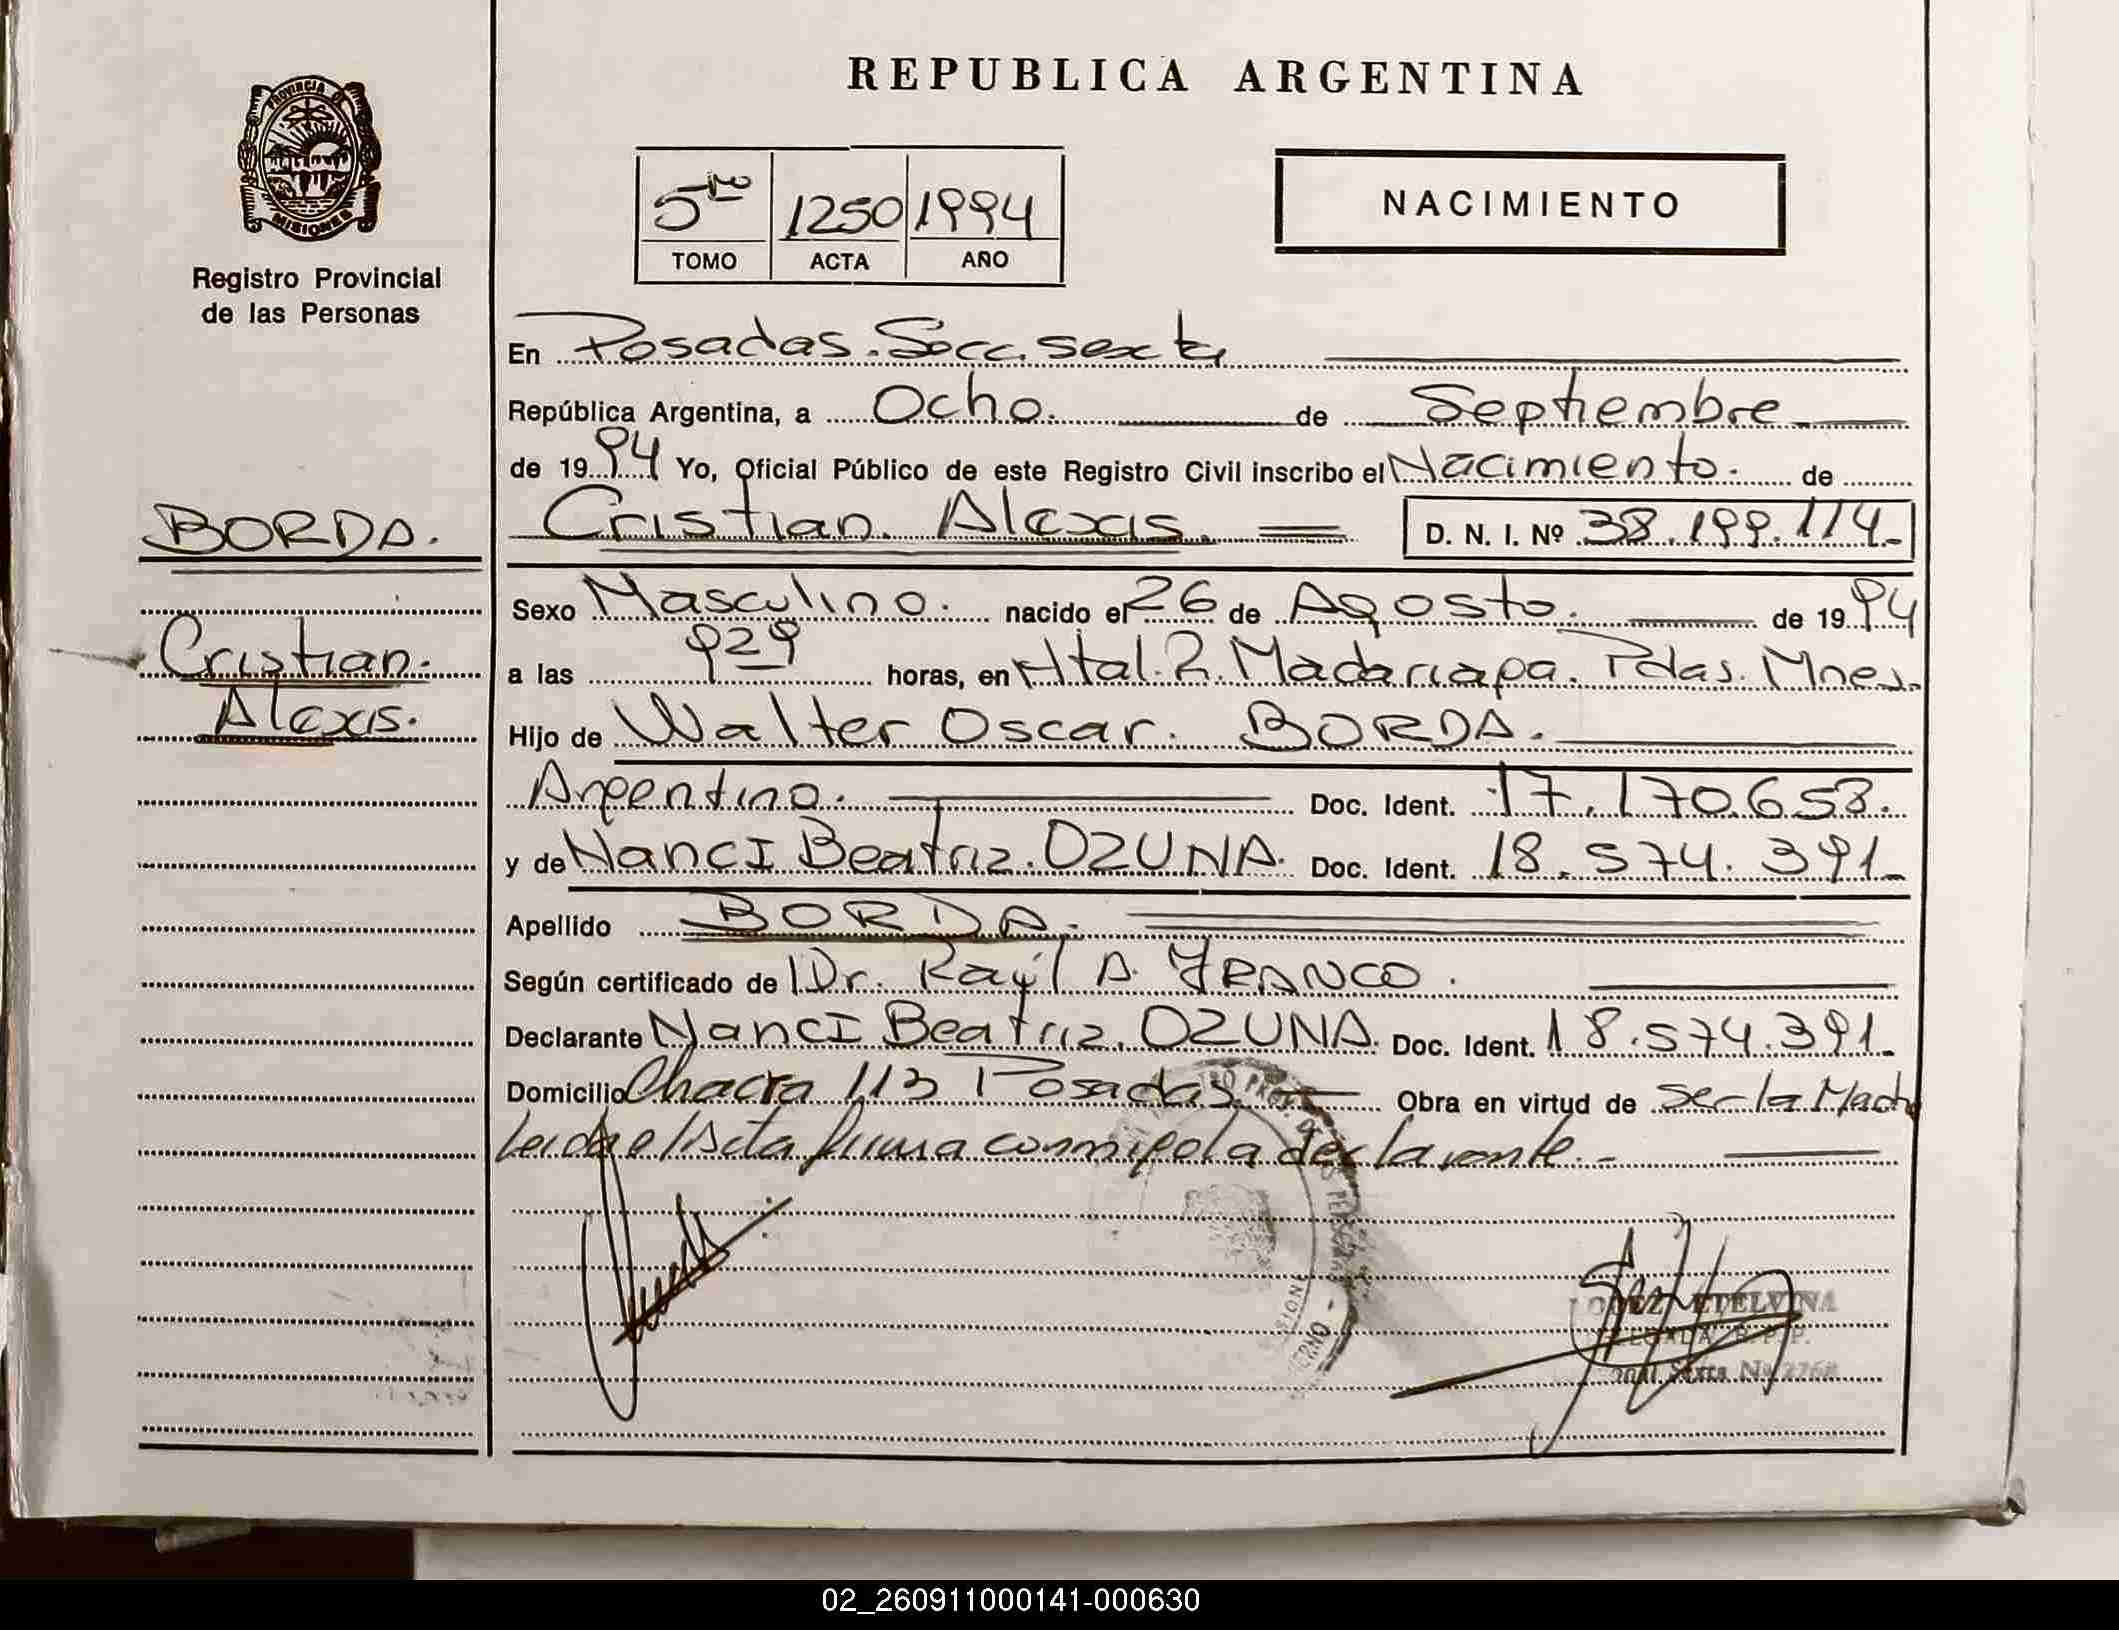 PROVINCIA D
MISIONES
Registro Provincial
de las Personas
BORDA.
Cristian.
Alexis.
REPUBLICA ARGENTINA
5to 1250 1994
TOMO ACTA AÑO
NACIMIENTO
En Posadas. Secc. sexta
República Argentina, a Ocho. de Septiembre
de 1994 Yo, Oficial Público de este Registro Civil inscribo el Nacimiento. de
Cristian. Alexis. D. N. I. Nº 38.199.114.-
Sexo Masculino. nacido el 26 de Agosto. de 1994
a las 929 horas, en Htal. R. Madariaga. Pdas. Mnes.
Hijo de Walter Oscar. BORDA.
Argentino. Doc. Ident. 17.170.653.
y de Nanci Beatriz. OZUNA. Doc. Ident. 18.574.391.-
Apellido BORDA.
Según certificado de Dr. Raúl A. FRANCO.
Declarante Nanci Beatriz. OZUNA. Doc. Ident. 18.574.391.-
Domicilio Chacra 113 Posadas. Obra en virtud de ser la Madre
Leida el Acta firma conmigo la declarante.-
LOPEZ ETELVINA
R. P. P.
Sexta Nº 2768
02_260911000141-000630